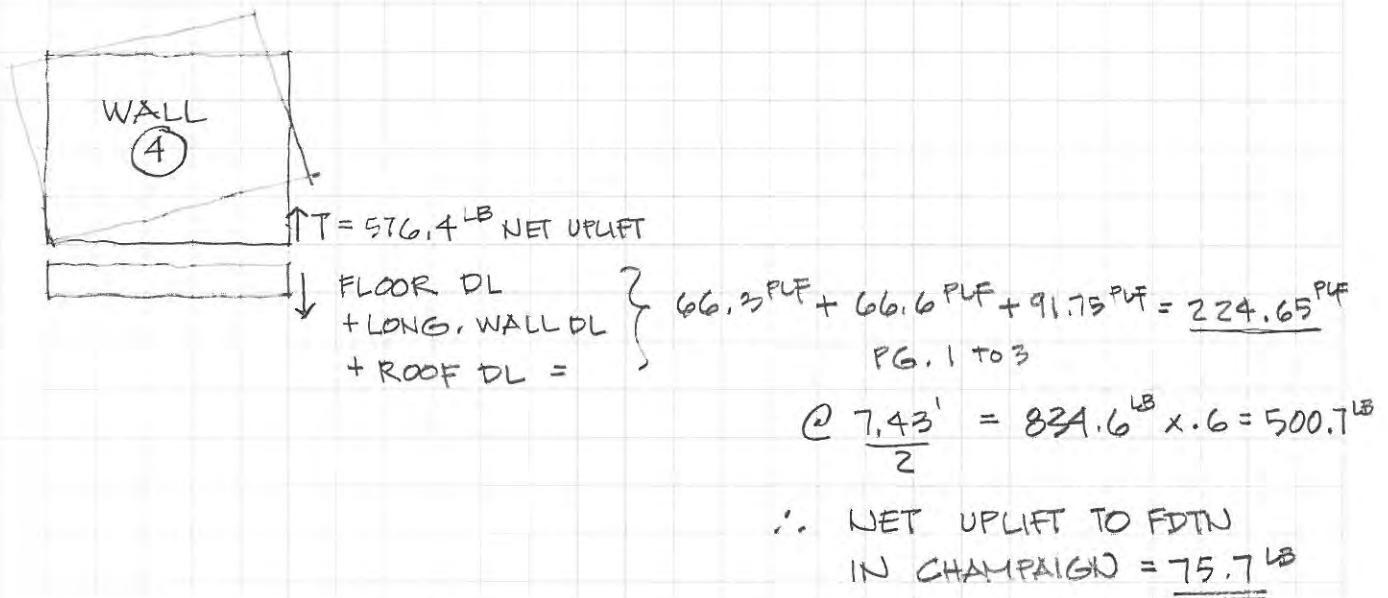 WALL
4
↑T = 576.4 LB NET UPLIFT
↓ FLOOR DL
+ LONG. WALL DL
+ ROOF DL =
} 66.3 PLF + 66.6 PLF + 91.75 PLF = 224.65 PLF
PG. 1 TO 3
@ 7.43' / 2 = 834.6 LB x .6 = 500.7 LB
∴ NET UPLIFT TO FDTN
IN CHAMPAIGN = 75.7 LB